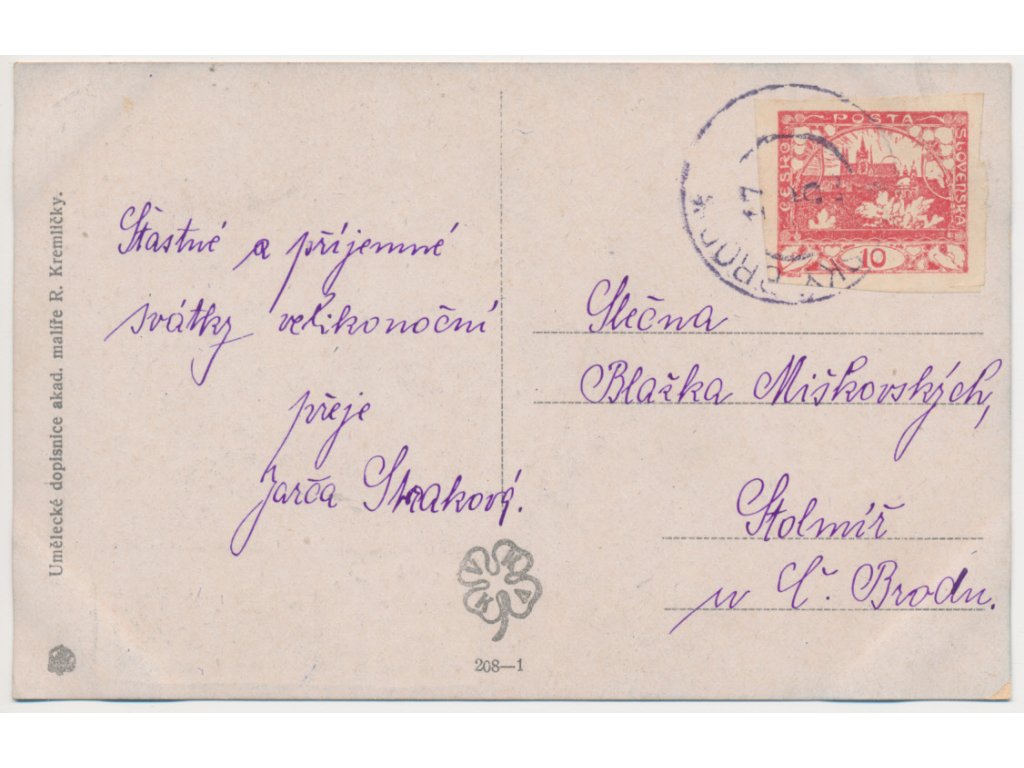 Umělecké dopisnice akad. malíře R. Kremličky.
Šťastné a příjemné
svátky velikonoční
přeje
Jarča Strakový.
VKKA
208—1
POŠTA
ČESKO
SLOVENSKÁ
10
ČESKÝ BROD
17
Slečna
Blažka Miškovských,
Štolmíř
u Č. Brodu.